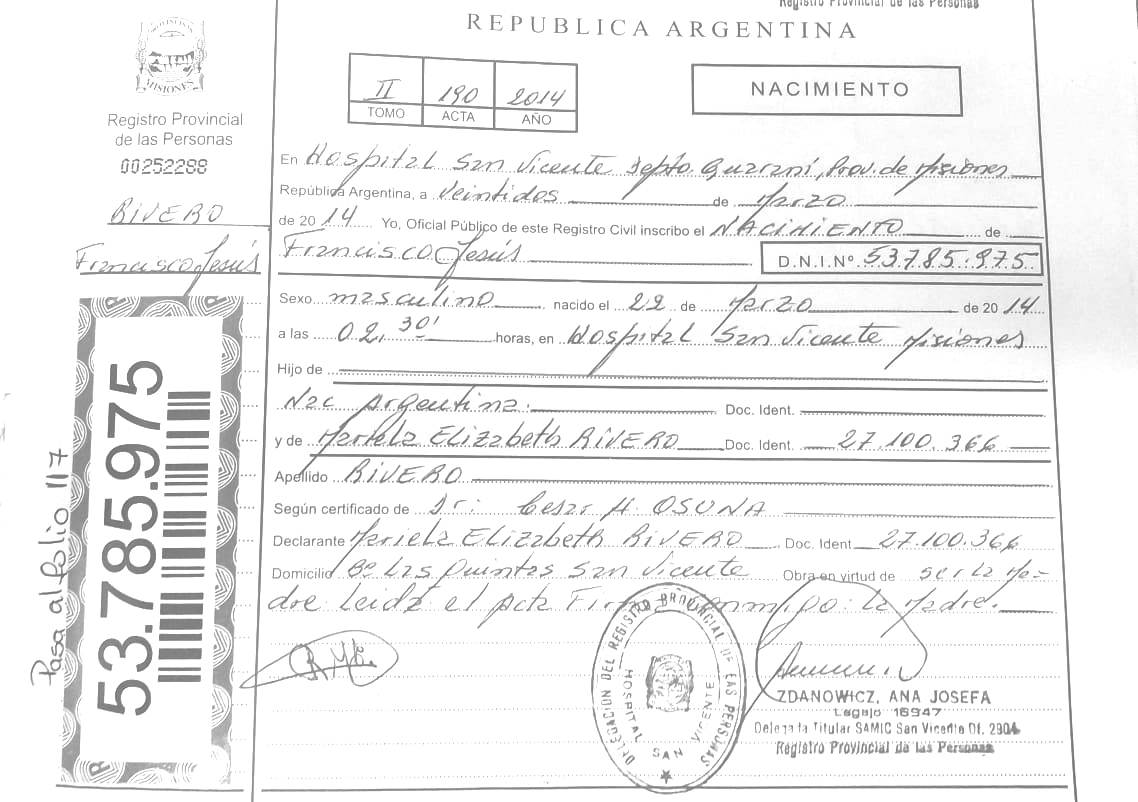 Registro Provincial de las Personas
REPUBLICA ARGENTINA
PROVINCIA
MISIONES
Registro Provincial
de las Personas
00252288
RIVERO
Francisco Jesús
53.785.975
Pasa al folio 117
II 190 2014
TOMO ACTA AÑO
NACIMIENTO
En Hospital San Vicente Depto. Guaraní, Prov. de Misiones
República Argentina, a veintidos de Marzo
de 2014 Yo, Oficial Público de este Registro Civil inscribo el NACIMIENTO de
Francisco Jesús D.N.I.Nº 53.785.975
Sexo masculino nacido el 22 de Marzo de 2014
a las 02,30' horas, en Hospital San Vicente Misiones
Hijo de
Nac Argentina. Doc. Ident.
y de Mariela Elizabeth RIVERO Doc. Ident. 27.100.366
Apellido RIVERO
Según certificado de Dr: Cesar H. OSUNA
Declarante Mariela Elizabeth RIVERO Doc. Ident 27.100.366
Domicilio Bº Las Quintas San Vicente Obra en virtud de ser la Ma-
dre Leida el Acta Firma conmigo: La Madre.
DELEGACION DEL REGISTRO PROVINCIAL DE LAS PERSONAS
HOSPITAL SAN VICENTE
ZDANOWICZ, ANA JOSEFA
Legajo 16947
Delegada Titular SAMIC San Vicente Of. 2904
Registro Provincial de las Personas